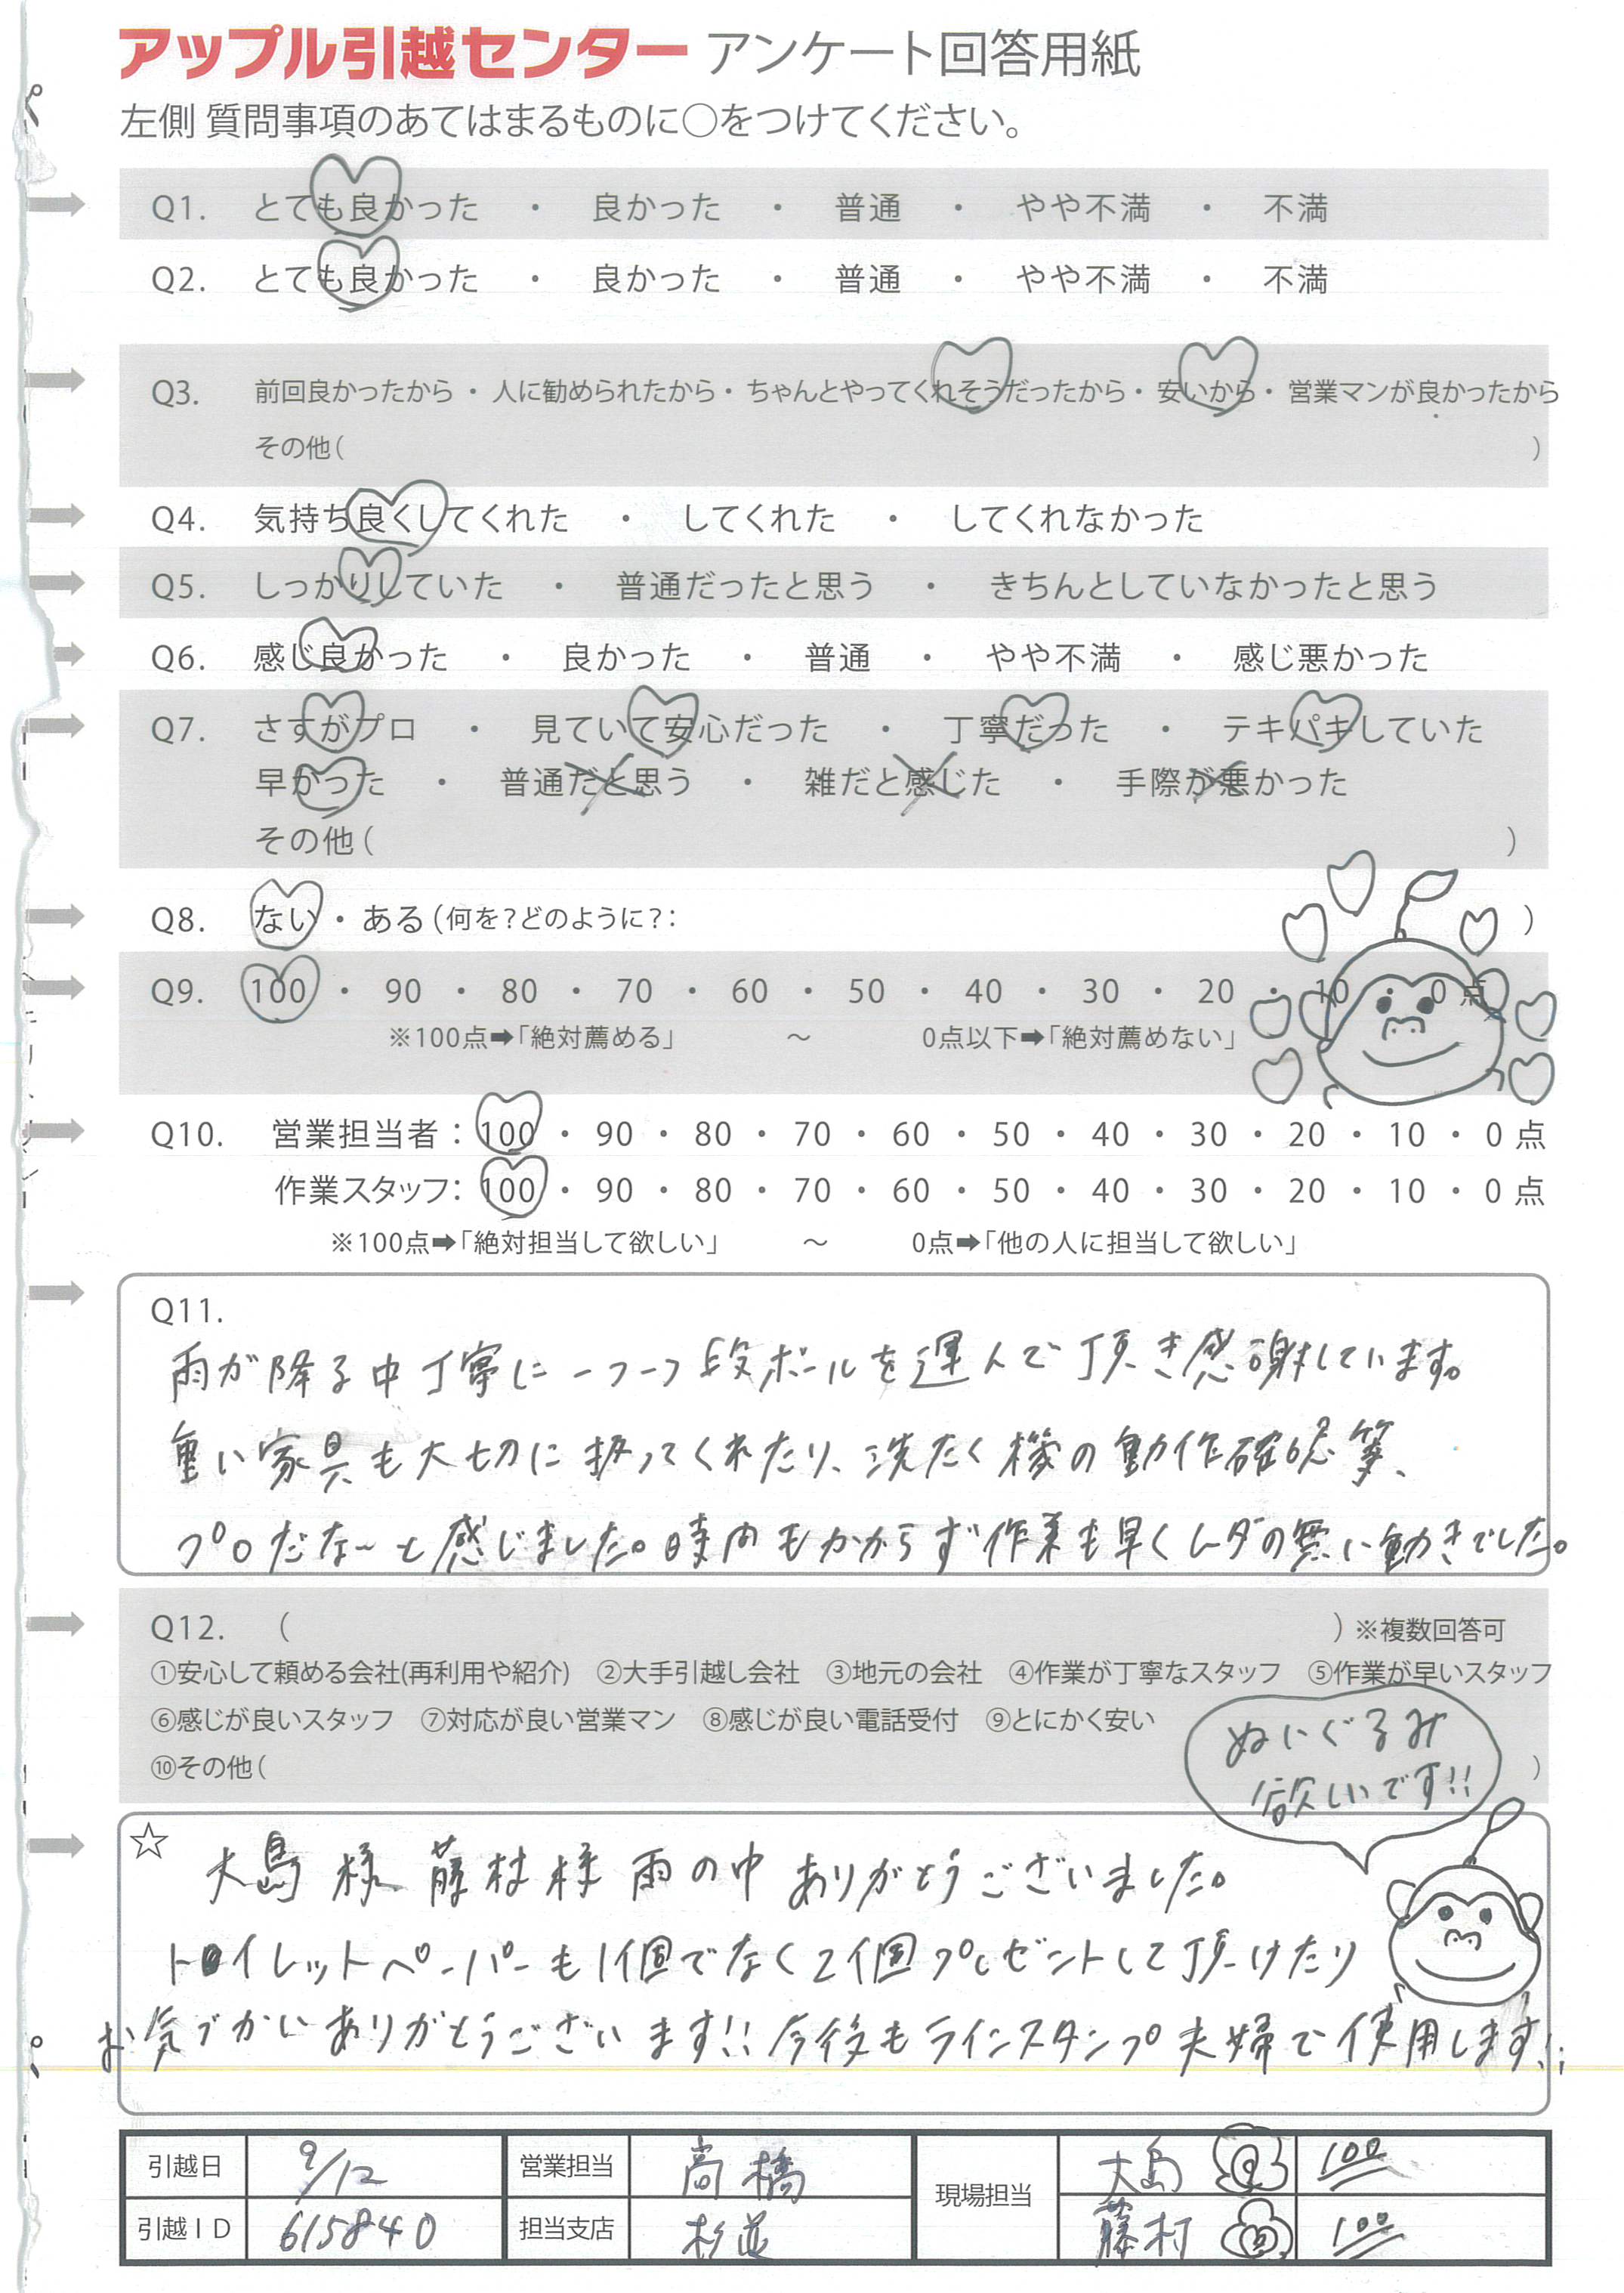 アップル引越センター アンケート回答用紙
左側 質問事項のあてはまるものに○をつけてください。
Q1. とても良かった ・ 良かった ・ 普通 ・ やや不満 ・ 不満
Q2. とても良かった ・ 良かった ・ 普通 ・ やや不満 ・ 不満
Q3. 前回良かったから・人に勧められたから・ちゃんとやってくれそうだったから・安いから・営業マンが良かったから
その他( )
Q4. 気持ち良くしてくれた ・ してくれた ・ してくれなかった
Q5. しっかりしていた ・ 普通だったと思う ・ きちんとしていなかったと思う
Q6. 感じ良かった ・ 良かった ・ 普通 ・ やや不満 ・ 感じ悪かった
Q7. さすがプロ ・ 見ていて安心だった ・ 丁寧だった ・ テキパキしていた
早かった ・ 普通だと思う ・ 雑だと感じた ・ 手際が悪かった
その他( )
Q8. ない・ある(何を?どのように?: )
Q9. 100 ・ 90 ・ 80 ・ 70 ・ 60 ・ 50 ・ 40 ・ 30 ・ 20 ・ 10 ・ 0 点
※100点➡「絶対薦める」 ～ 0点以下➡「絶対薦めない」
Q10. 営業担当者：100 ・ 90 ・ 80 ・ 70 ・ 60 ・ 50 ・ 40 ・ 30 ・ 20 ・ 10 ・ 0 点
作業スタッフ：100 ・ 90 ・ 80 ・ 70 ・ 60 ・ 50 ・ 40 ・ 30 ・ 20 ・ 10 ・ 0 点
※100点➡「絶対担当して欲しい」 ～ 0点➡「他の人に担当して欲しい」
Q11.
雨が降る中丁寧に一つ一つ段ボールを運んで頂き感謝しています。
重い家具も大切に扱ってくれたり、洗たく機の動作確認等、
プロだな～と感じました。時間もかからず作業も早くムダの無い動きでした。
Q12. ( ) ※複数回答可
①安心して頼める会社(再利用や紹介) ②大手引越し会社 ③地元の会社 ④作業が丁寧なスタッフ ⑤作業が早いスタッフ
⑥感じが良いスタッフ ⑦対応が良い営業マン ⑧感じが良い電話受付 ⑨とにかく安い
⑩その他( )
ぬいぐるみ
欲しいです!!
☆ 大島様 藤村様 雨の中 ありがとうございました。
トイレットペーパーも1個でなく2個プレゼントして頂けたり
お気づかいありがとうございます!! 今後もラインスタンプ夫婦で使用します!!
引越日 9/12 営業担当 高橋 現場担当 大島 100
引越ＩＤ 615840 担当支店 杉並 藤村 100